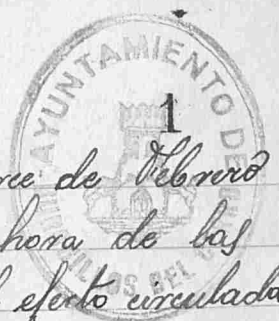 1
AYUNTAMIENTO DE
de Febrero
hora de las
efecto circulada